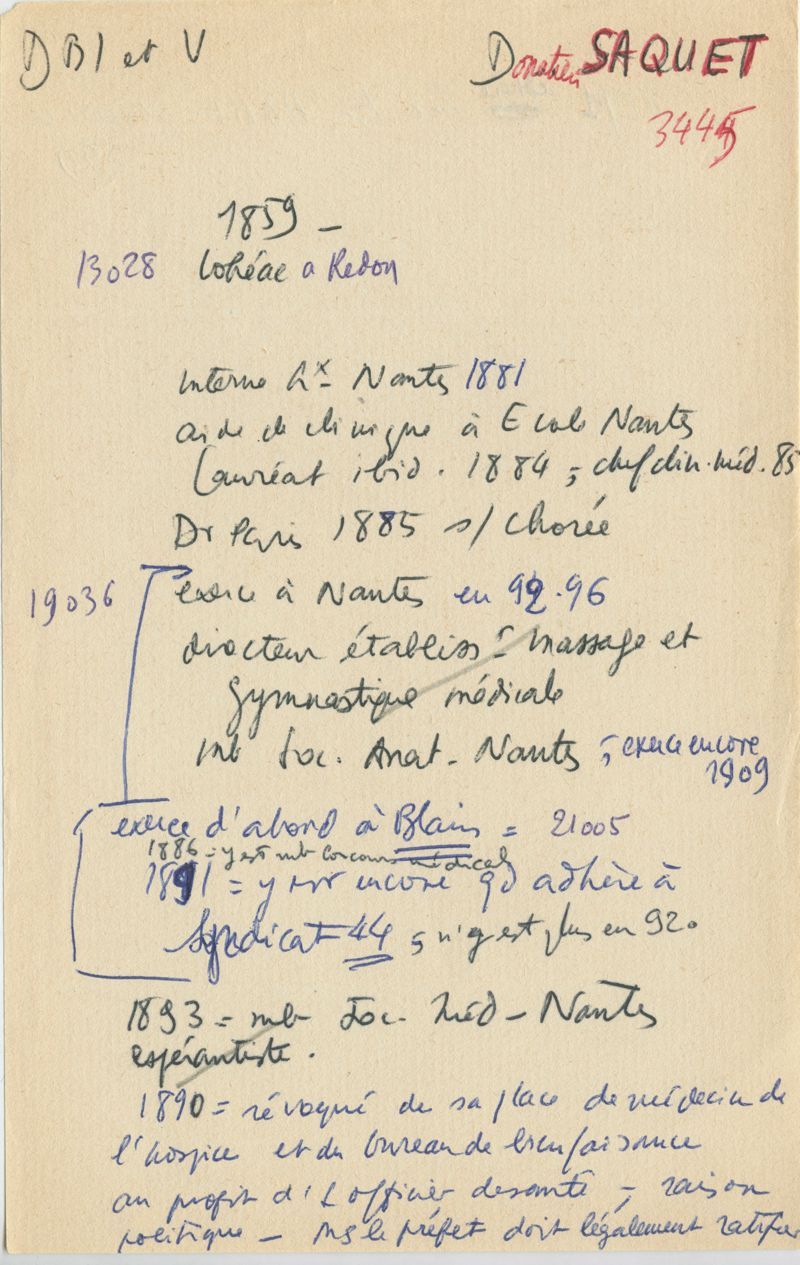 D B I et V
Donatien SAQUET
3445
1859 _
13028 Lohéac a Redon
interne hx Nantes 1881
aide de clinique à Ecole Nantes
Lauréat ibid. 1884 ; chef clin. méd. 85
Dr Paris 1885 s/ chorée
19036 exerce à Nantes en 92.96
directeur établisst massage et
gymnastique médicale
mb Soc. Anat. Nantes ; exerce encore
1909
exerce d'abord à Blain = 21005
1886 = y est mb Concours médical
1891 = y est encore qd adhère à
Syndicat 44 ; n'y est plus en 92.
1893 = mb Soc. Méd - Nantes
espérantiste.
1890 = révoqué de sa place de médecin de
l'hospice et du bureau de bienfaisance
au profit d'1 officier de santé - raison
politique - Ms le préfet doit légalement ratifier